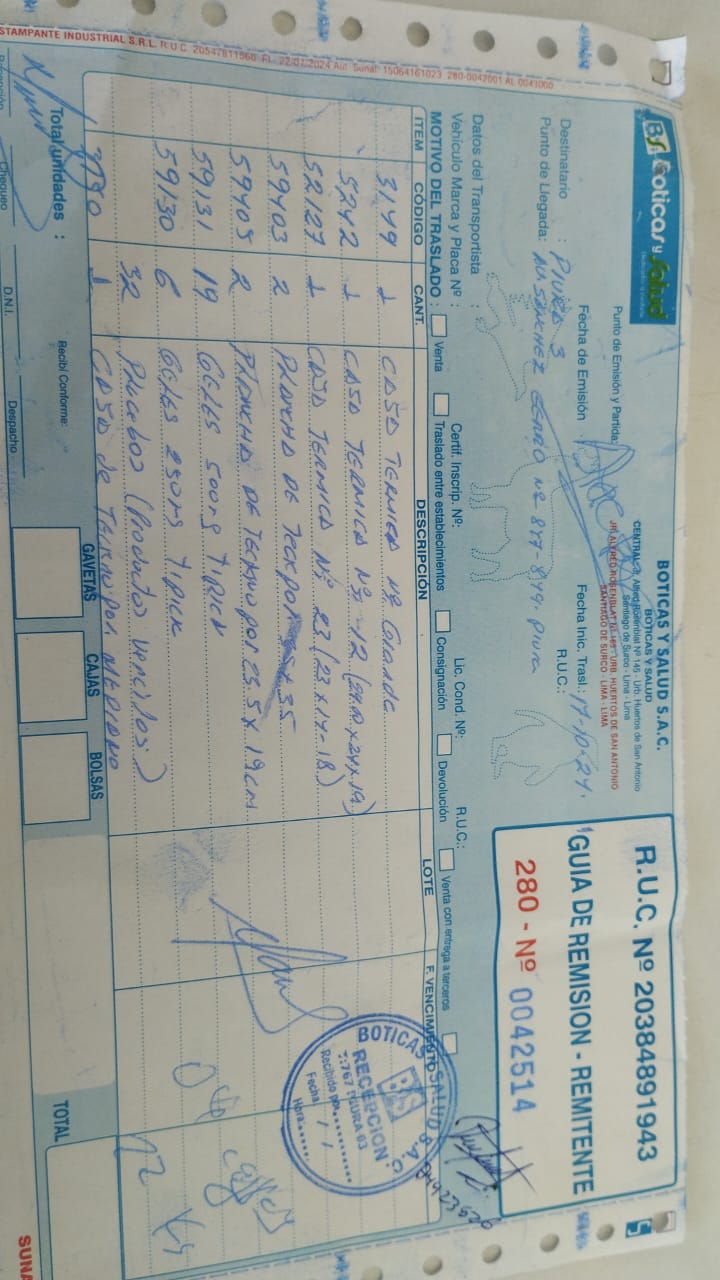 BS Boticas y Salud
BOTICAS Y SALUD S.A.C.
CENTRAL: Jr. Alfred Rosenblat Nº 145 - Urb. Huertos de San Antonio
Santiago de Surco - Lima - Lima
BOTICAS Y SALUD
JR. ALFRED ROSENBLAT Nº 165 - URB. HUERTOS DE SAN ANTONIO
SANTIAGO DE SURCO - LIMA - LIMA
R.U.C. Nº 20384891943
GUIA DE REMISION - REMITENTE
280 - Nº 0042514
Punto de Emisión y Partida:
Fecha de Emisión :
Fecha Inic. Trasl.: 17-10-24.
Destinatario : PIURA 3
R.U.C.:
Punto de Llegada: AV SÁNCHEZ CERRO Nº 847-849. Piura
Datos del Transportista :
Vehículo Marca y Placa Nº :
Certif. Inscrip. Nº:
Lic. Cond. Nº:
R.U.C.:
MOTIVO DEL TRASLADO: Venta Traslado entre establecimientos Consignación Devolución Venta con entrega a terceros
ITEM CÓDIGO CANT. DESCRIPCIÓN LOTE F. VENCIMIENTO
3149 1 CAJA TERMICA Nº Grande
5242 1 CAJA TERMICA Nº 12
52127 1 CAJA TERMICA Nº 23 (23x17-18)
59403 2 PLANCHA DE TECKPOR 35
59405 2 PLANCHA DE TECKNOPOR 25.5 x 19 cm
59131 19 GELES 500 rg TIPICK
59130 6 GELES 250 rg TIPICK
32 Placebos (Productos Vencidos)
3150 1 CAJA de TERNOPOR MEDIANO
BOTICAS Y SALUD S.A.C.
BS
RECEPCION
T:767 PIURA 03
Recibido por:
Fecha: / /
Hora:
04 cajas
12 Kg
Total unidades :
Recibí Conforme:
GAVETAS CAJAS BOLSAS
TOTAL
Recepción Chequeo D.N.I. Despacho
SUNA
STAMPANTE INDUSTRIAL S.R.L. R.U.C. 20547811560 FI. 22/07/2024 Aut. Sunat: 15064161023 280-0042001 AL 0043000